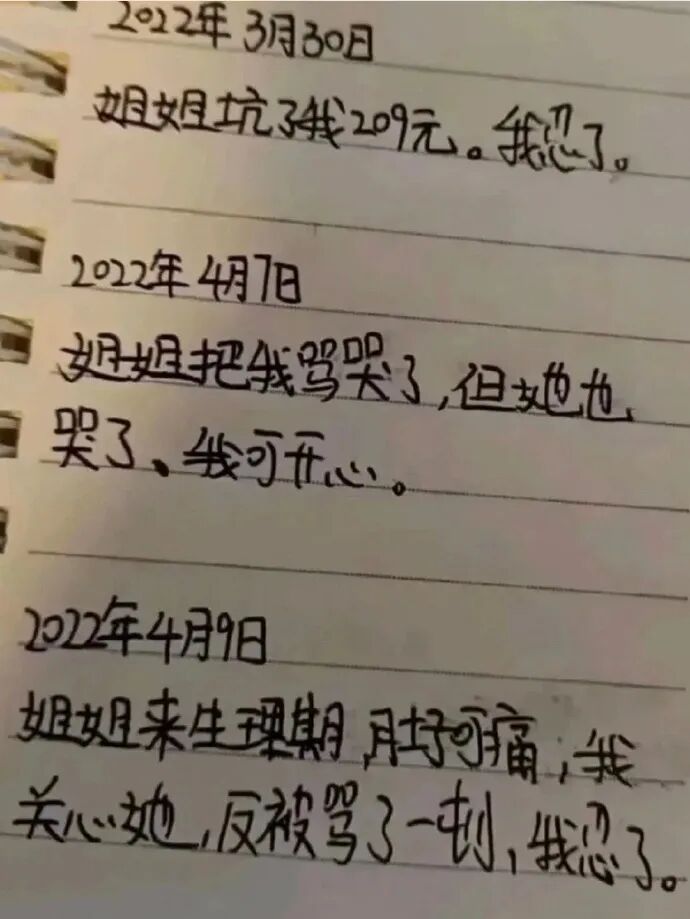 2022年3月30日
姐姐坑了我209元。我忍了。
2022年4月7日
姐姐把我骂哭了,但她也
哭了、我可开心。
2022年4月9日
姐姐来生理期,肚子可痛,我
关心她,反被骂了一顿,我忍了。